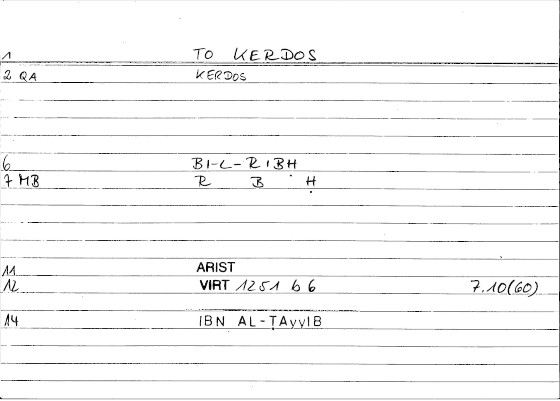 1 TO KERDOS
2 QA KERDOS
6 BI-L-RIBḤ
7 MB R B Ḥ
11 ARIST
12 VIRT 1251 b 6 7.10(60)
14 IBN AL-ṬAyyIB